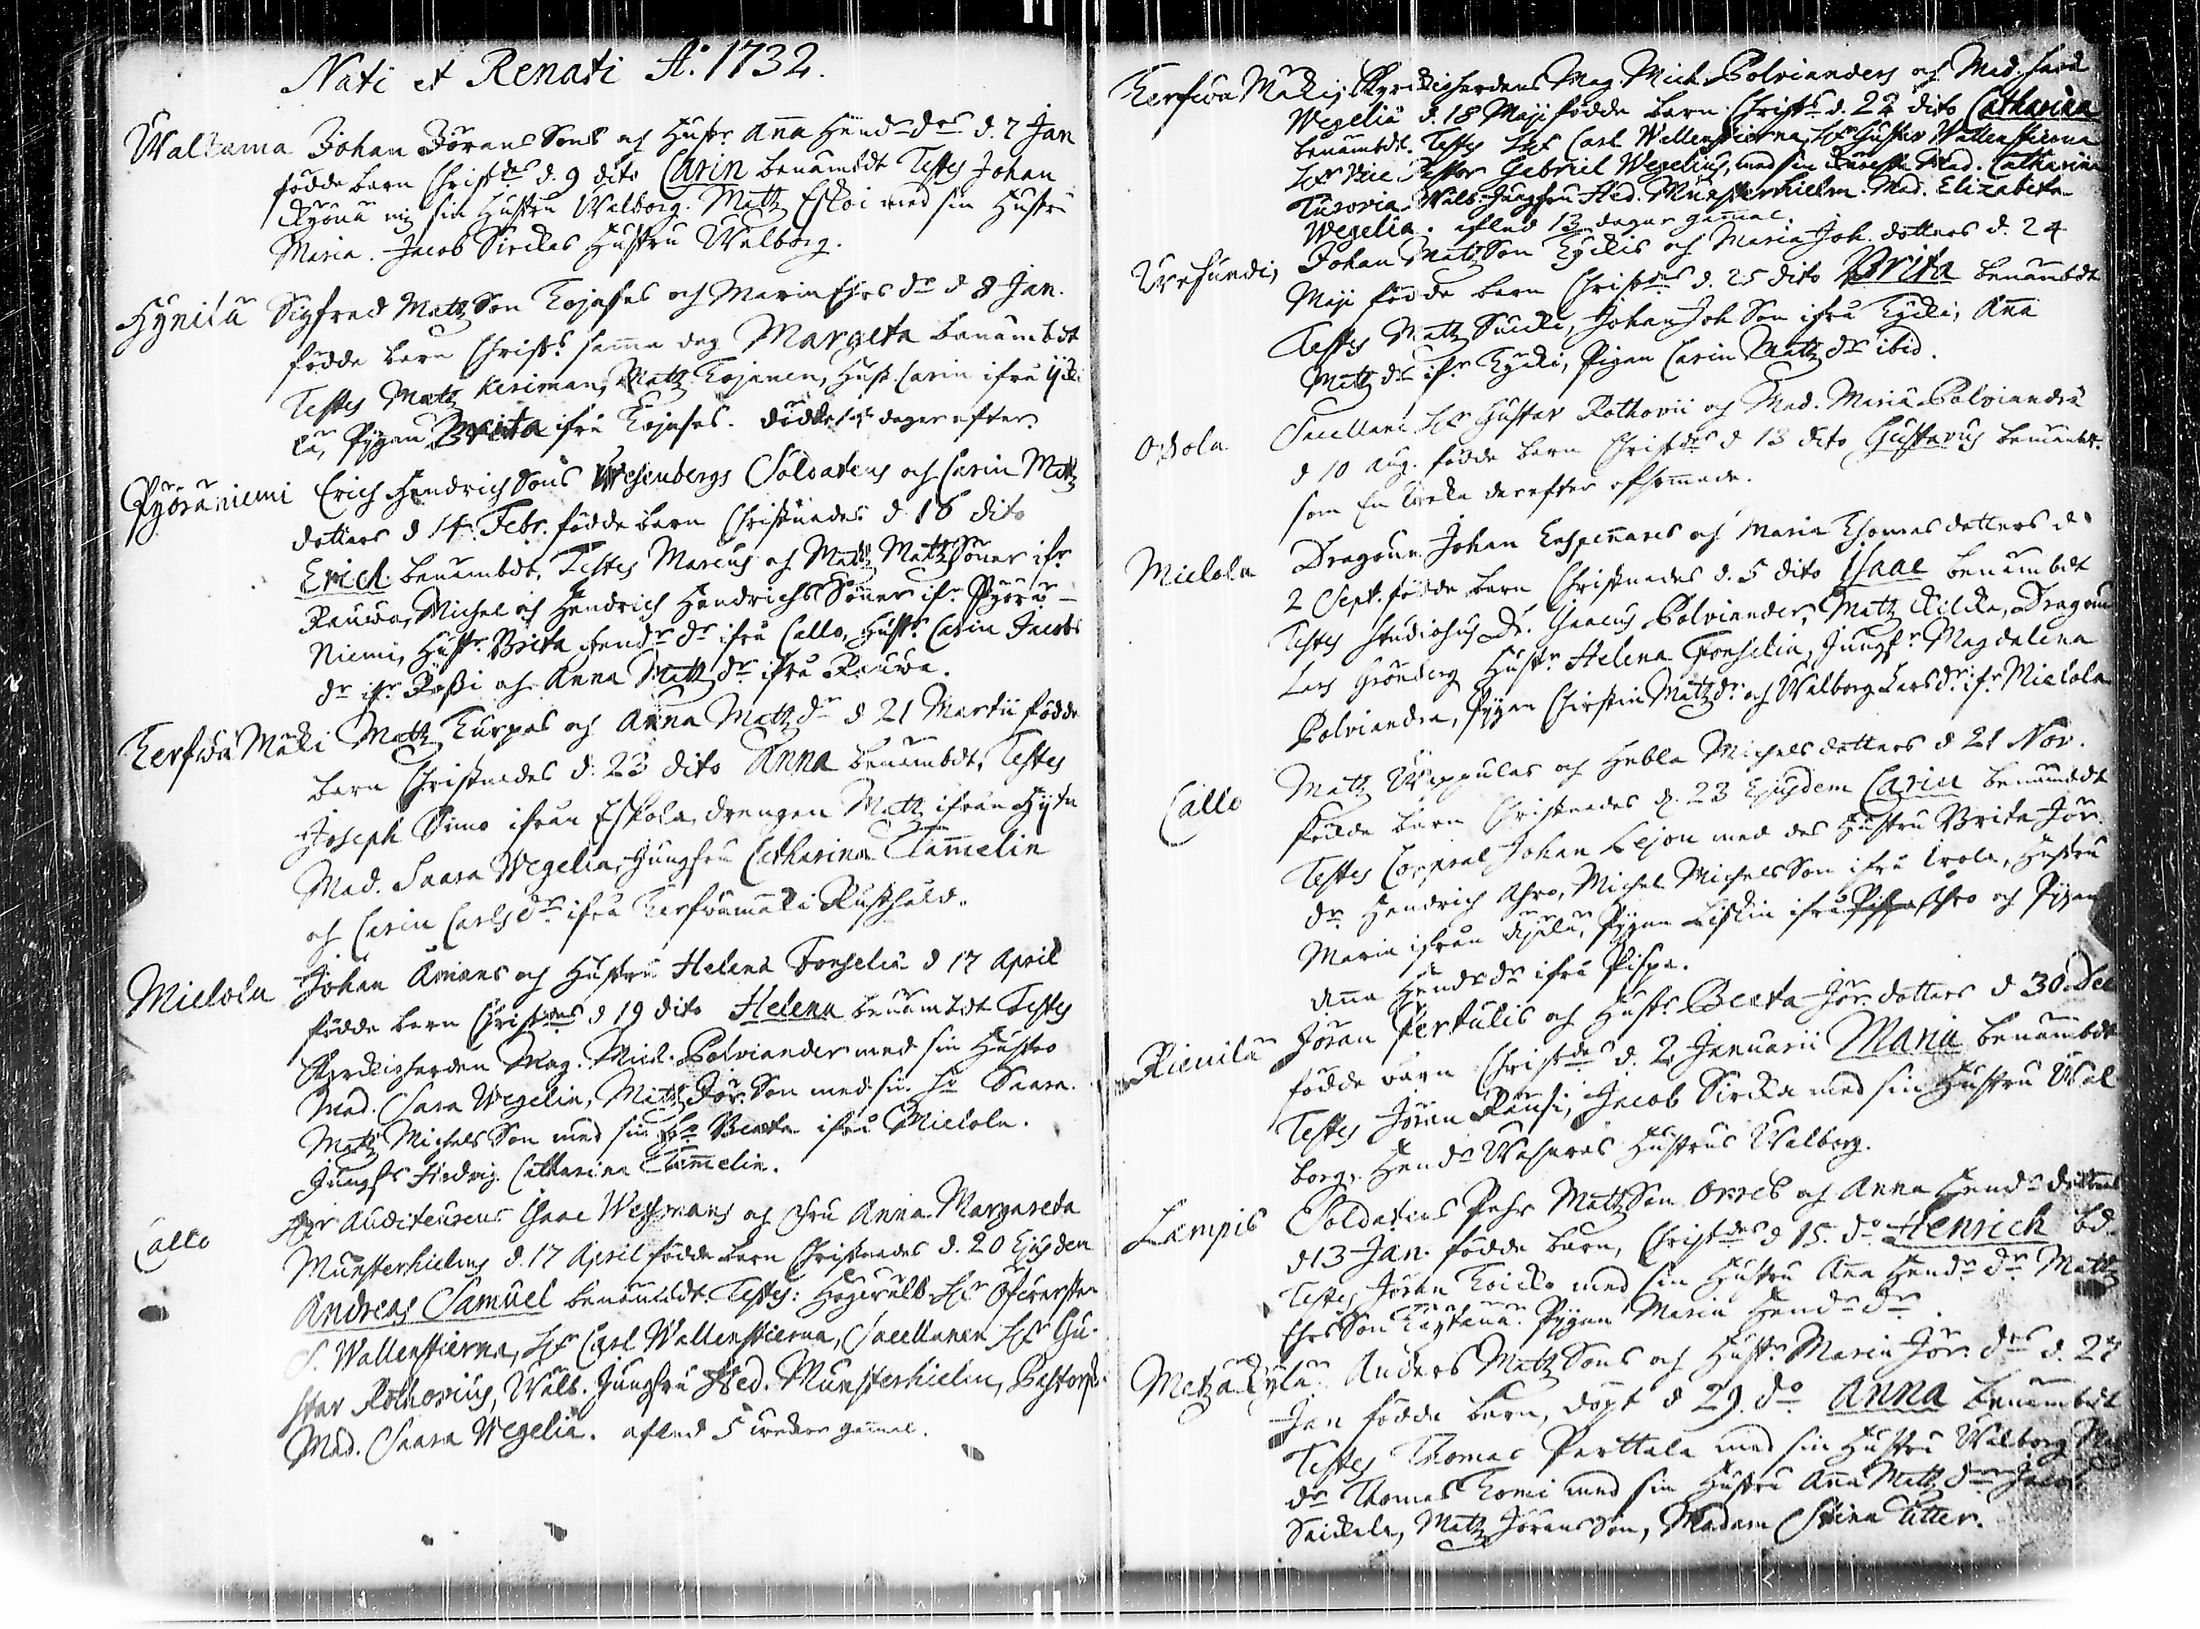 Nati et Renati A:o 1732.
Waltama Johan Jörans Sons och Hustr. Anna Hend:s drs d. 7 Jan
födde barn Christ:des d. 9 dito Carin benämbdt Testes Johan
sin Hustru Walborg. Matz Eskoi med sin Hustru
Maria. Jacob Sirckas Hustru Walborg.
Hynilä Sigfred Matz Son Kojases och Maria Ehrs dr d 8 Jan.
födde barn Christ:s samma dag Margeta benämbdt
Testes Matz Keriman, Matz Kojanen, Hust. Carin ifrå
Pygan Brita ifrå Kojases. dödde dager efter.
Pyöräniemi Erich Hendrich Sons Wesenbergs Soldatens och Carin Matz
dotters d 14 Febr. födde barn Christnades d. 16 dito
Erich benämbdt, Testes Marcus och Matz Matz Söner ifr.
Rauwa, Michel och Hendrich Hendrichs Söner ifr. Pyörä-
Niemi, Hustr. Brita Hend:r dr ifrå Callo, Hustr. Carin Jacobs
dr ifr. Rässi och Anna Matz dr ifrå Rauwa.
Kerfwä Mäki Matz Kurpas och Anna Matz dr d 21 Martii födde
barn Christnades d. 23 dito Anna benämbdt, Testes
Joseph Simo ifrån Eskola, drengen Matz ifrån
Mad. Saara Wegelia, Jungfru Catharina Tammelin
och Carin Carls dr ifrå Kerfwämäki Rusthåld.
Mielola Johan Amans och Hustru Helena Forselia d 17 April
födde barn Christ:des d 19 dito Helena benämbdt Testes
Kyrckioherden Mag. Mich. Polviander med sin Hustro
Mad. Sara Wegelia, Matz Jör. Son med sin H:o Saara.
Matz Michels Son med sin H:o Beata ifrå Mielola.
Jungfr. Hedvig Catharina Tammelin.
Callo Hr Auditeurens Isaac Westmans och Fru Anna Margareta
Munsterhielms d. 17 April födde barn Christnades d. 20 Ejusdem
Andreas Samuel benämbdt. Testes: Hr Öfwersten
S. Wallenstierna, Hr Carl Wallenstierna, Sacellanen Hr Gu-
stav Rothovius, Wälb. Jungfru Hed. Munsterhielm, Pastorsk.
Mad. Saara Wegelia. aflled 5 weckor gammal.
Kerfwä Mäki, Kyrckioherdens Mag. Mich. Polvianders och Mad. Sara
Wegeliæ d. 18 Maji födde barn Christ:s d. 22 dito Catharina
benämbdt. Testes Hr Carl Wallenstierna, Hr Gustav Wallenstierna
Hr Vice Pastor Gabriel Wegelius, med sin Mad. Catharina
Wälb. Jungfru Hed. Munsterhielm. Mad. Elizabeta
Wegelia. afled 13 dagar gammal.
Johan Matz Son Kyckis och Maria Joh. dotters d. 24
Maji födde barn Christ:des d. 25 dito Brita benämbdt
Testes Matz Johan Joh Son ifrå Kycki, Anna
Matz dr ifr. Kycki, Pigan Carin Matz dr ibid.
Sacellani Hr Gustav Rothovii och Mad. Mariæ Polviandræ
d 10 Aug. födde barn Christ:des d 13 dito Gustavus benämbdt.
som En wecka derefter afsomnade.
Mielola Dragoun Johan och Maria Thomas dotters d.
2 Sept. födde barn Christnades d. 5 dito Isaac benämbdt
Testes Studiosus Dn. Isacus Polviander, Matz Dragoun
Lars Grönberg Hustr. Helena Forselia, Jungf:r Magdalena
Polviandra, Pygan Christin Matz dr och Walborg Lars dr ifr. Mielola
Callo Matz och Hebla Michels dotters d 21 Nov.
födde barn Christnades d. 23 Ejusdem Carin benämbdt
Testes Corporal Johan Lejon med des Hustru Brita Jör.
dr Hendrich Ahro, Michel Michels Son ifrå Hustru
Maria ifrån Pygan Liskin ifrå Ahro och Pygan
Anna Hend:s dr ifrå Pispa.
Jöran Pertulis och Hustr. Beata Jör. dotters d 30 Dec
födde barn Christ:des d. 2 Januarii Maria benämbdt
Testes Jöran Jacob Sircka med sin Hustru Wal-
borg, Hend:s Hustrus Walborg.
Lampis Soldatens Pehr Matz Son Orres och Anna Hend:s dotters
d 13 Jan. födde barn, Christ:des d 15 do Henrich bd.
Testes, Jöran Koicko med sin Hustru Anna Hend:s dr Matz
Ehrs Son Pygan Maria Hend:s dr.
Metzäkylä Anders Matz Sons och Hustr. Maria Jör. drs d. 27
Jan födde barn, döpt d 29. do Anna benämbdt
Testes Thomas Perttala med sin Hustru Walborg
dr Thomas Tomi med sin Hustru Anna Matz dr Jacob
Saickala, Matz Jörans Son, Madam Stina